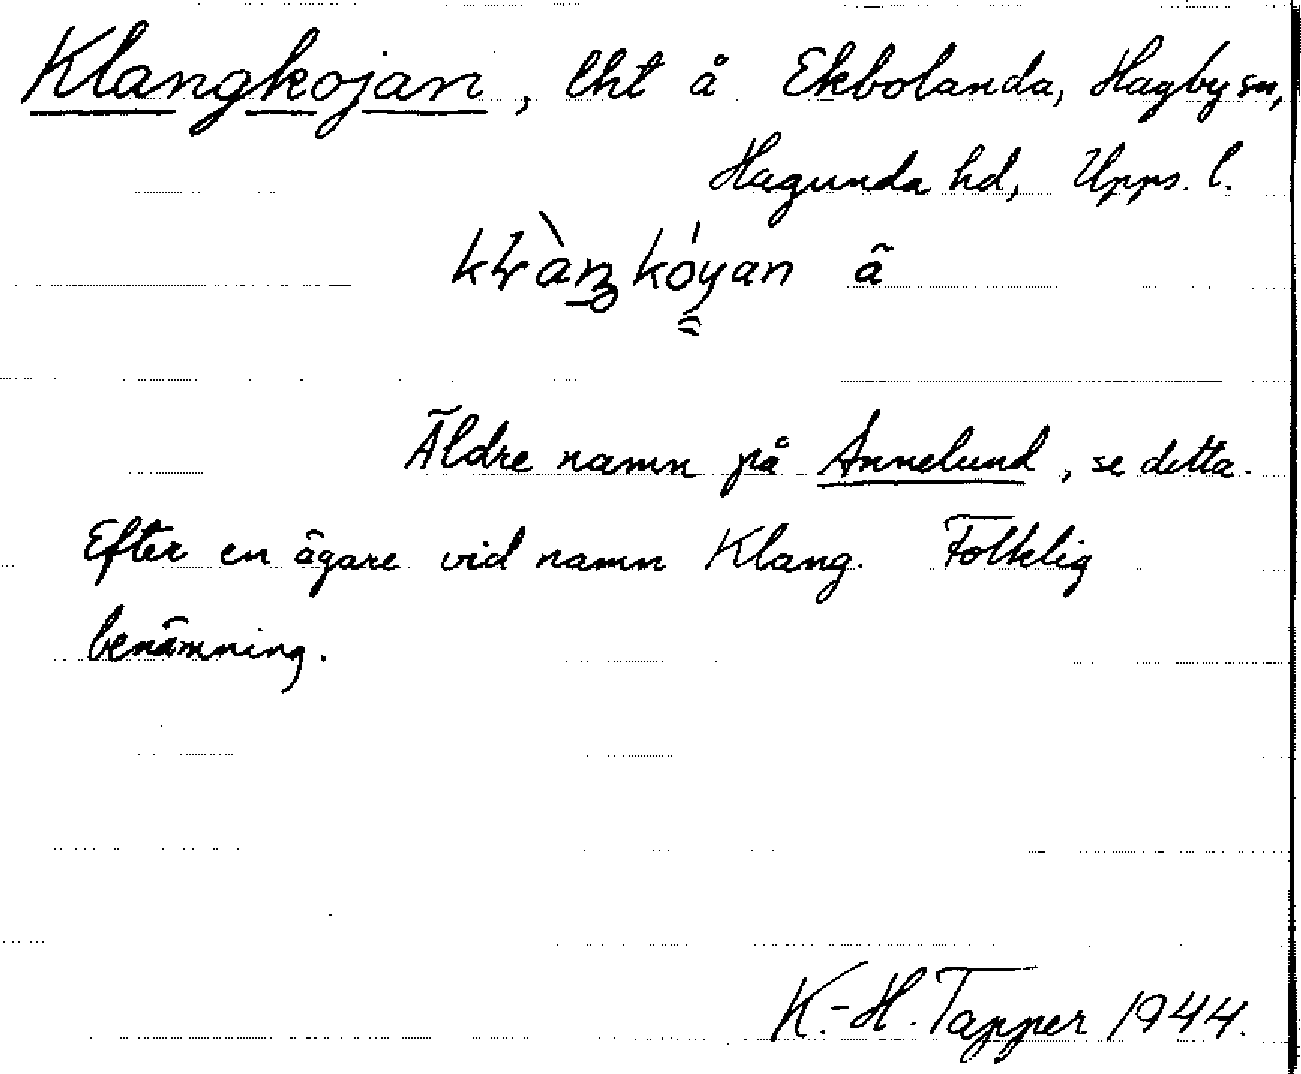 Klangkojan, lht å Ekbolanda, Hagby sn,
Hagunda hd, Upps. l.
kojan å
Äldre namn på Annelund, se detta.
Efter en ägare vid namn Klang. Folklig
benämning.
K.-H. Tapper 1944.